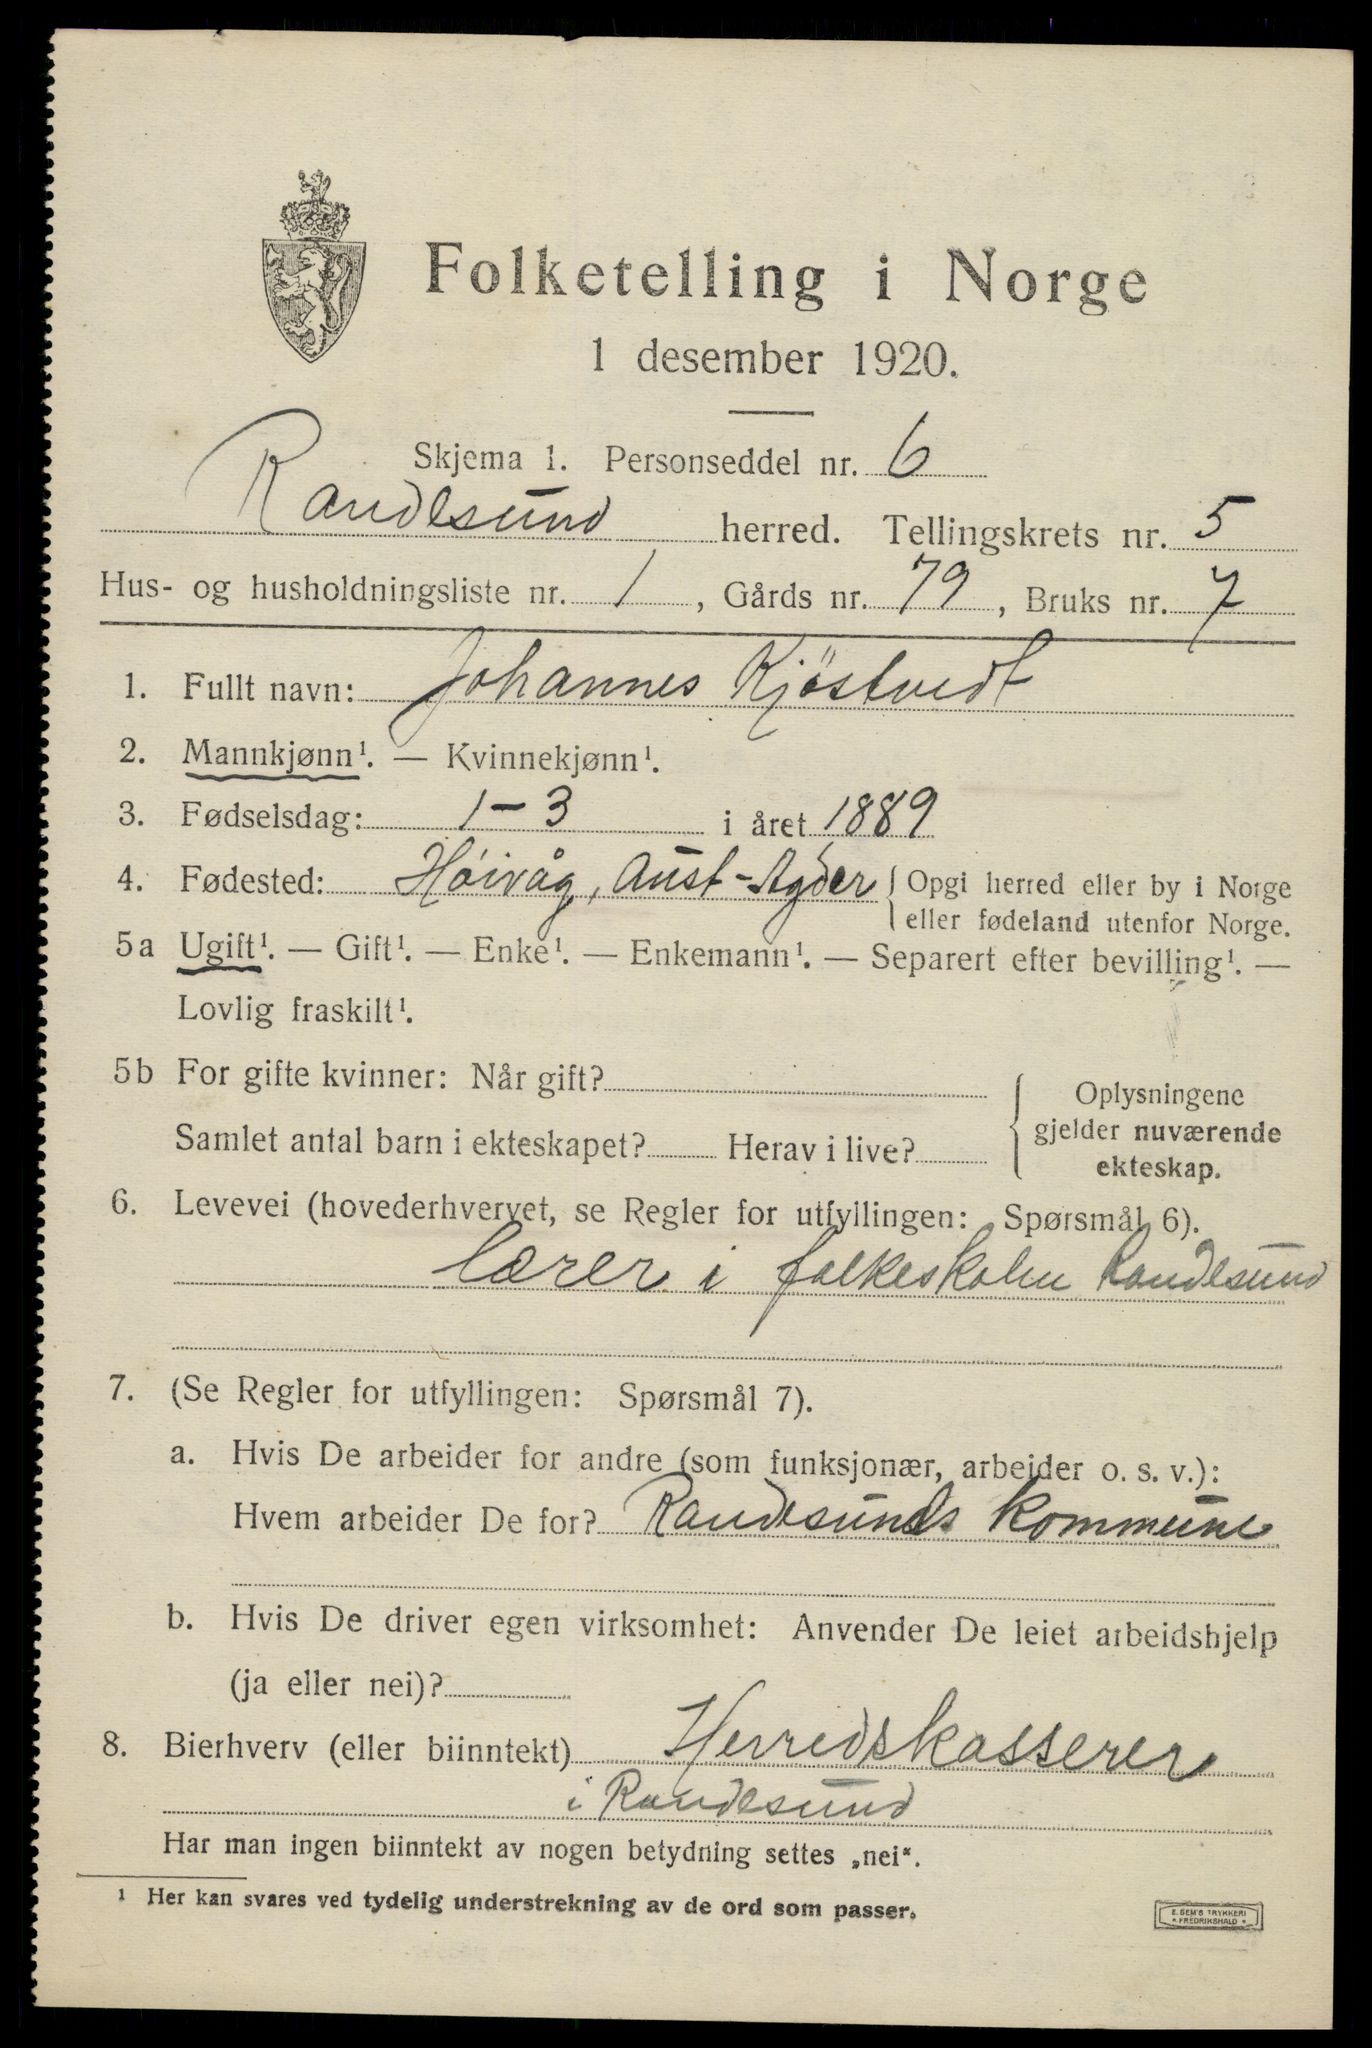 Folketelling i Norge
1 desember 1920.
Skjema 1. Personseddel nr. 6
Randesund herred. Tellingskrets nr. 5
Hus- og husholdningsliste nr. 1, Gårds nr. 79, Bruks nr. 7
1. Fullt navn: Johannes Kjöstvedt
2. Mannkjønn¹. — Kvinnekjønn¹.
3. Fødselsdag: 1-3 i året 1889
4. Fødested: Höivåg, Aust-Agder { Opgi herred eller by i Norge
eller fødeland utenfor Norge.
5a Ugift¹. — Gift¹. — Enke¹. — Enkemann¹. — Separert efter bevilling¹. —
Lovlig fraskilt¹.
5b For gifte kvinner: Når gift?
Samlet antal barn i ekteskapet? Herav i live?
Oplysningene
gjelder nuværende
ekteskap.
6. Levevei (hovederhvervet, se Regler for utfyllingen: Spørsmål 6).
lærer i folkeskolen Randesund
7. (Se Regler for utfyllingen: Spørsmål 7).
a. Hvis De arbeider for andre (som funksjonær, arbeider o. s. v.):
Hvem arbeider De for? Randesunds kommune
b. Hvis De driver egen virksomhet: Anvender De leiet arbeidshjelp
(ja eller nei)?
8. Bierhverv (eller biinntekt) Herredskasserer
i Randesund
Har man ingen biinntekt av nogen betydning settes „nei“.
¹ Her kan svares ved tydelig understrekning av de ord som passer.
E. SEM'S TRYKKERI
* FREDRIKSHALD *